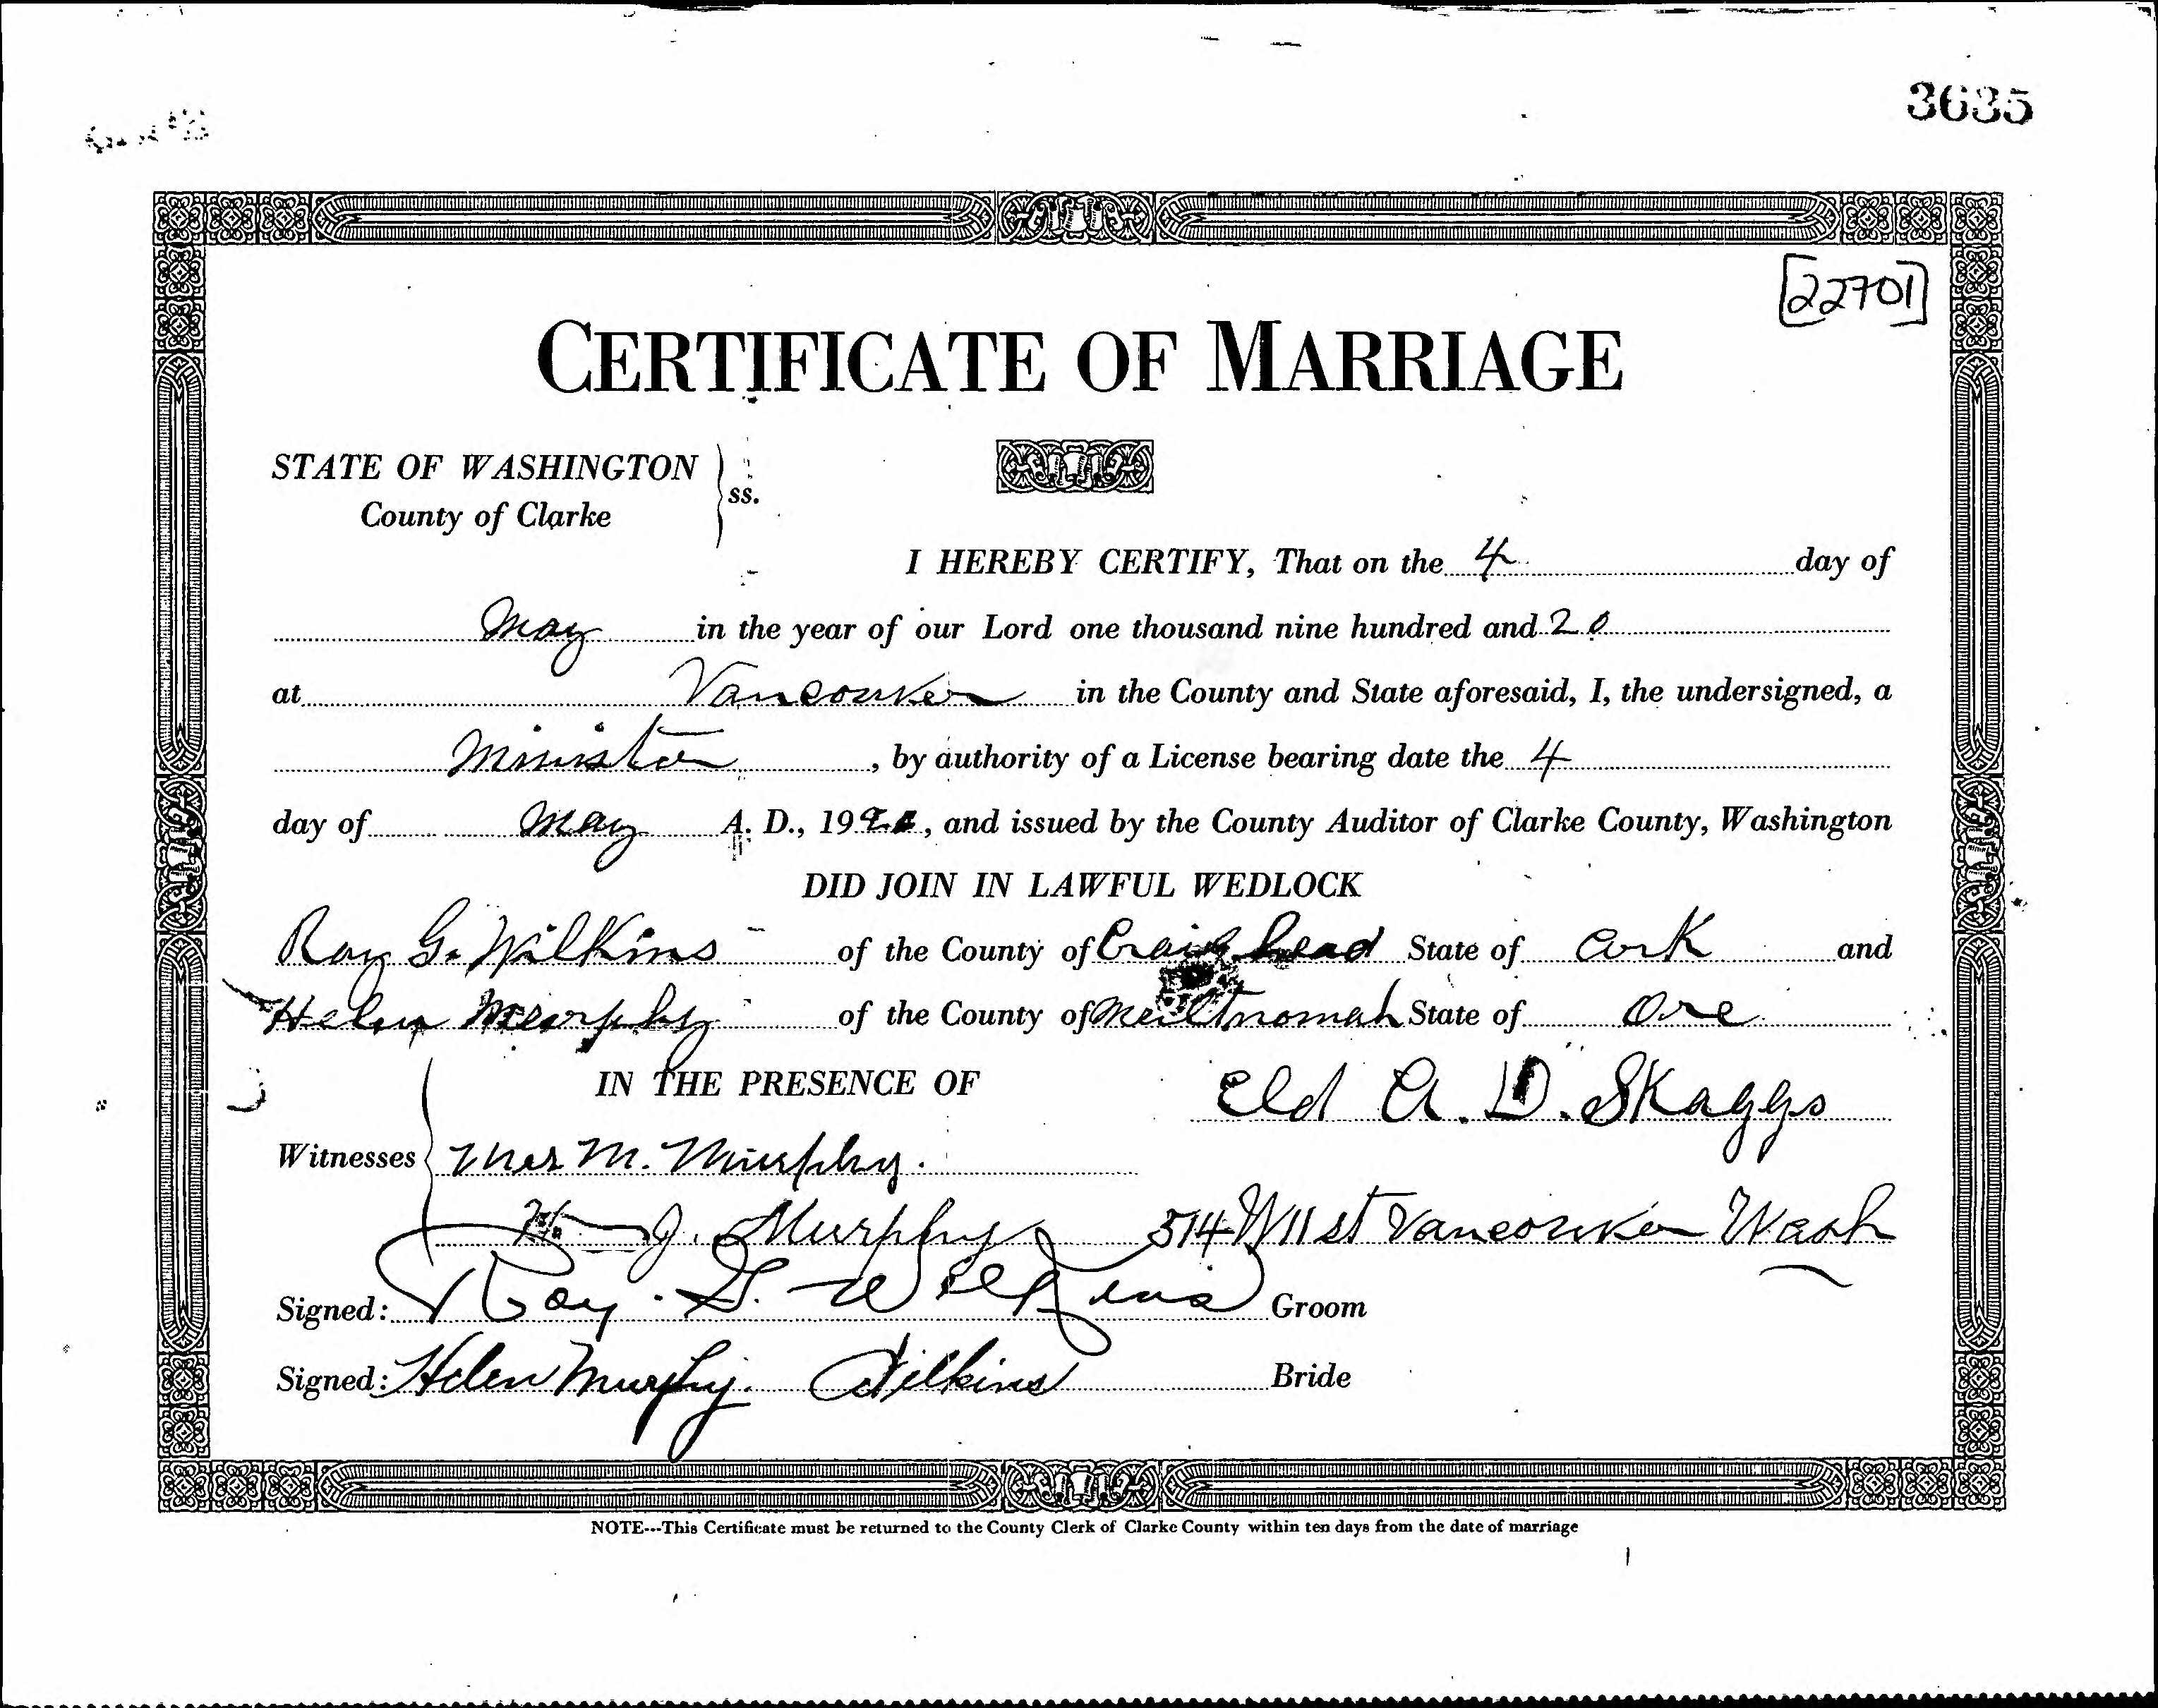 3635
[22701]
CERTIFICATE OF MARRIAGE
STATE OF WASHINGTON
ss.
County of Clarke
I HEREBY CERTIFY, That on the 4 day of
May in the year of our Lord one thousand nine hundred and 20
at Vancouver in the County and State aforesaid, I, the undersigned, a
Minister, by authority of a License bearing date the 4
day of May A. D., 1920, and issued by the County Auditor of Clarke County, Washington
DID JOIN IN LAWFUL WEDLOCK
Roy G. Wilkins of the County of Craighead State of Ark and
Helen Murphy of the County of Multnomah State of Ore
IN THE PRESENCE OF
Eld A. D. Skaggs
Witnesses Mrs M. Murphy.
J. Murphy 514 W 11 st Vancouver Wash
Signed: Roy. G. Wilkins Groom
Signed: Helen Murphy. Wilkins Bride
NOTE---This Certificate must be returned to the County Clerk of Clarke County within ten days from the date of marriage